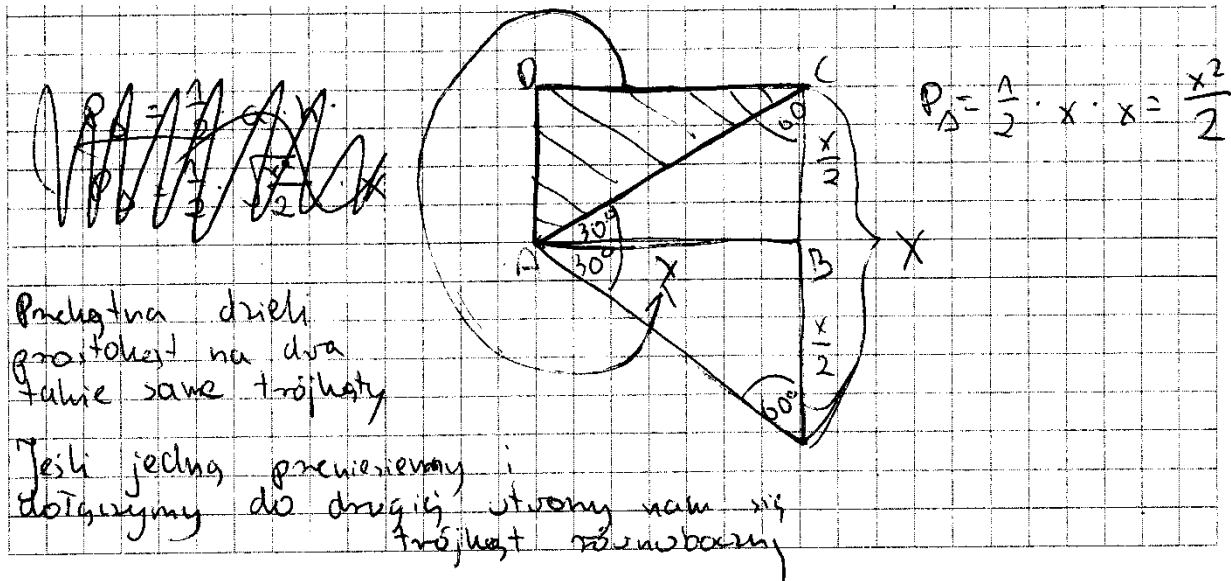 D
C
60
P_Δ = 1/2 · x · x = x²/2
x/2
30°
A
30°
X
B
X
x/2
60°
Przekątna dzieli
prostokąt na dwa
takie same trójkąty
Jeśli jedną przeniesiemy i
dołączymy do drugiej utworzy nam się
trójkąt równoboczny